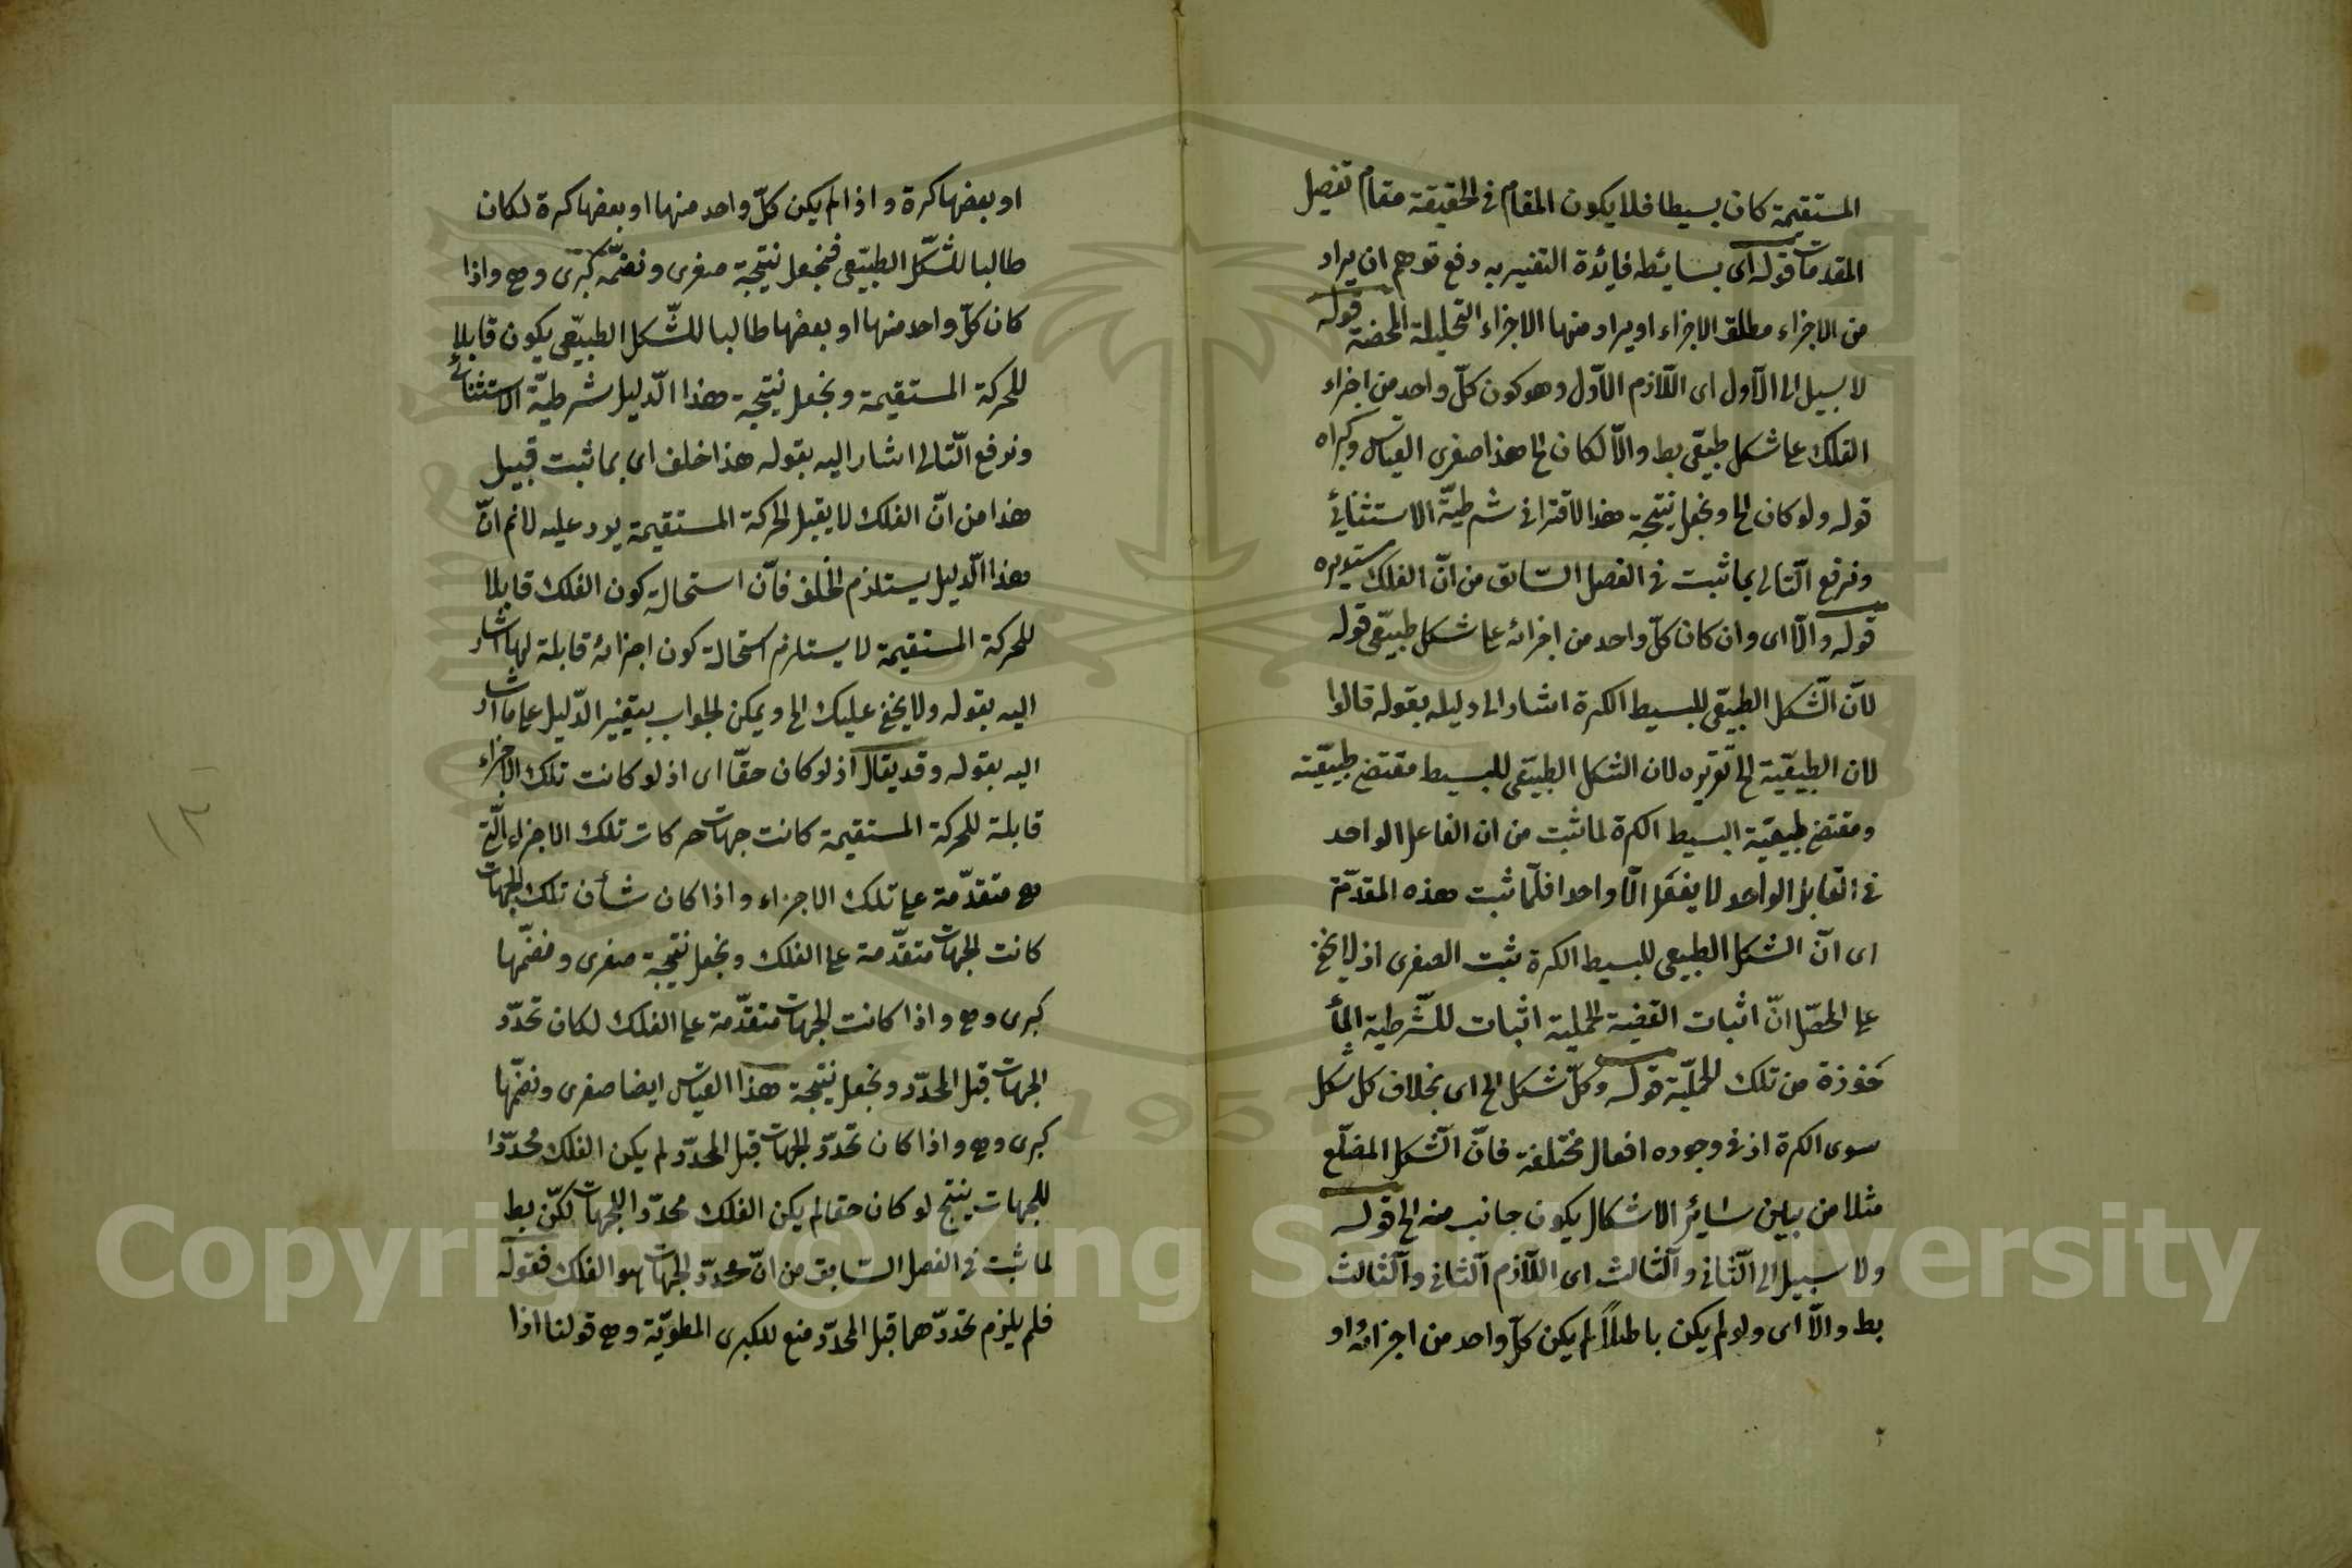 المستقيمة كان بسيطا فلا يكون المقام في الحقيقة مقام تفصيل
المقدمات قوله اى بسائطه فائدة التفسير به دفع توهم ان يراد
من الاجزاء مطلق الاجزاء او يراد منها الاجزاء التحليلية المحضة قوله
لا سبيل الى الاول اى اللازم الاول وهو كون كلّ واحد من اجزاء
الفلك على شكل طبيعى بط والّا لكان الخ هذا صغرى القياس وكبراه
قوله ولو كان الخ ونجعل نتيجة هذا الاقترانى شرطيّة الاستثنائى
ونرفع التالى بما ثبت فى الفصل السّابق من انّ الفلك مستديره
قوله والّا اى وان كان كلّ واحد من اجزائه على شكل طبيعى قوله
لانّ الشّكل الطبيعى للبسيط الكرة اشار الى دليله بقوله قالوا
لان الطبيعيّة الخ تقريره لان الشكل الطبيعى للبسيط مقتضى طبيعيّته
ومقتضى طبيعيّة البسيط الكرة لما ثبت من ان الفاعل الواحد
فى القابل الواحد لا يفعل الّا واحدا فلمّا ثبت هذه المقدّمة
اى انّ الشكل الطبيعى للبسيط الكرة ثبت الصغرى اذ لا يخفى
على المحصّل انّ اثبات القضية الحملية اثبات للشّرطية المأ
خوذة من تلك الحمليّة قوله وكلّ شكل الخ اى بخلاف كل شكل
سوى الكرة اذ فى وجوده افعال مختلفة فانّ الشّكل المضلّع
مثلا من بين سائر الاشكال يكون جانب منه الخ قوله
ولا سبيل الى الثّانى والثّالث اى اللّازم الثّانى والثّالث
بط والّا اى ولو لم يكن باطلًا لم يكن كلّ واحد من اجزائه او
او بعضها كرة واذا لم يكن كلّ واحد منها او بعضها كرة لكان
طالبا للشّكل الطبيعى فنجعل نتيجة صغرى ونضمّه كبرى وهى واذا
كان كلّ واحد منها او بعضها طالبا للشّكل الطبيعى يكون قابلا
للحركة المستقيمة ونجعل نتيجة هذا الدّليل شرطيّة الاستثنائى
ونرفع التّالى اشار اليه بقوله هذا خلف اى بما ثبت قبيل
هذا من انّ الفلك لا يقبل الحركة المستقيمة يرد عليه لانم انّ
هذا الدّليل يستلزم الخلف فانّ استحالة كون الفلك قابلا
للحركة المستقيمة لا يستلزم استحالة كون اجزائه قابلة لها اشار
اليه بقوله ولا يخفى عليك الخ ويمكن الجواب بتغيير الدّليل على ما اشار
اليه بقوله وقد يقال اذ لو كان حقّا اى اذ لو كانت تلك الاجزاء
قابلة للحركة المستقيمة كانت جهات حركات تلك الاجزاء الّتى
هى متقدّمة على تلك الاجزاء واذا كان شأن تلك الجهات
كانت الجهات متقدّمة على الفلك ونجعل نتيجة صغرى ونضمّها
كبرى وهى واذا كانت الجهات متقدّمة على الفلك لكان تحدّد
الجهات قبل المحدّد ونجعل نتيجة هذا القياس ايضا صغرى ونضمّها
كبرى وهى واذا كان تحدّد الجهات قبل المحدّد لم يكن الفلك محدّدا
للجهات ينتج لو كان حقا لم يكن الفلك محدّدا للجهات لكنّ بط
لما ثبت فى الفصل السّابق من انّ محدّد الجهات هو الفلك فقوله
فلم يلزم تحدّدهما قبل المحدّد منع للكبرى المطويّة وهى قولنا اذا
١٣
Copyright © King Saud University
1957